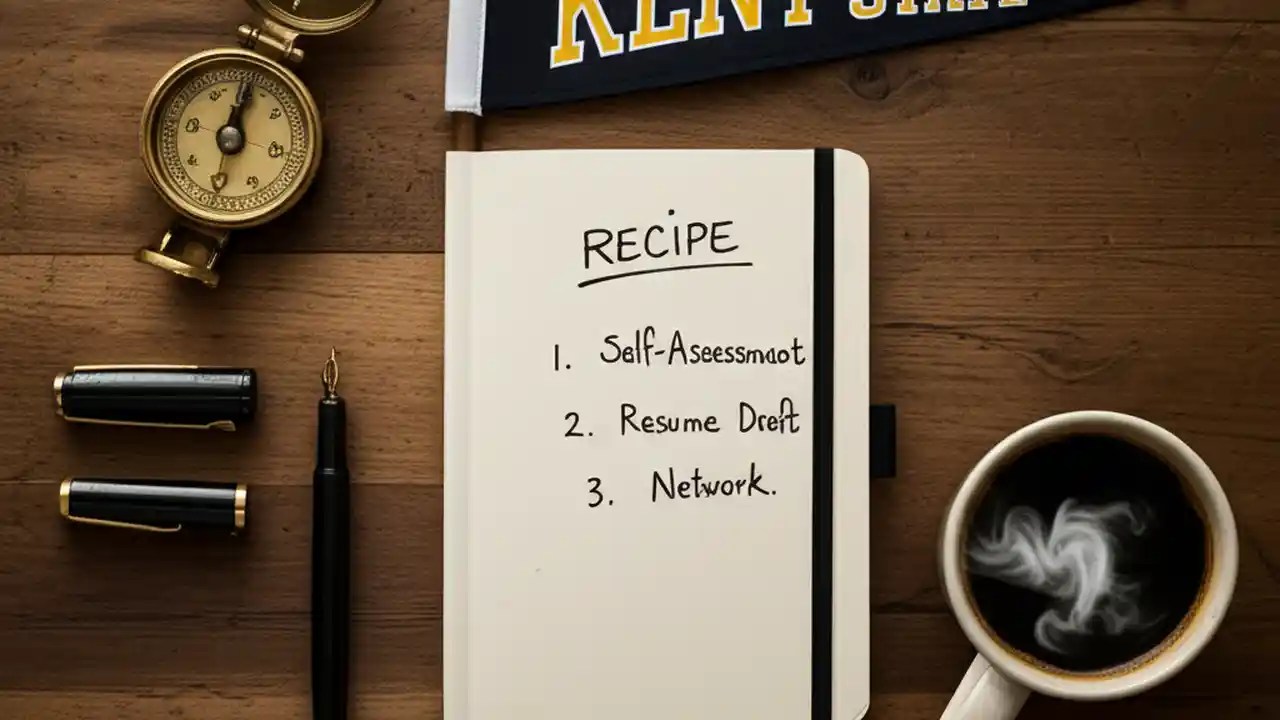 KENT STATE
RECIPE
1. Self-Assessment
2. Resume Draft
3. Network.